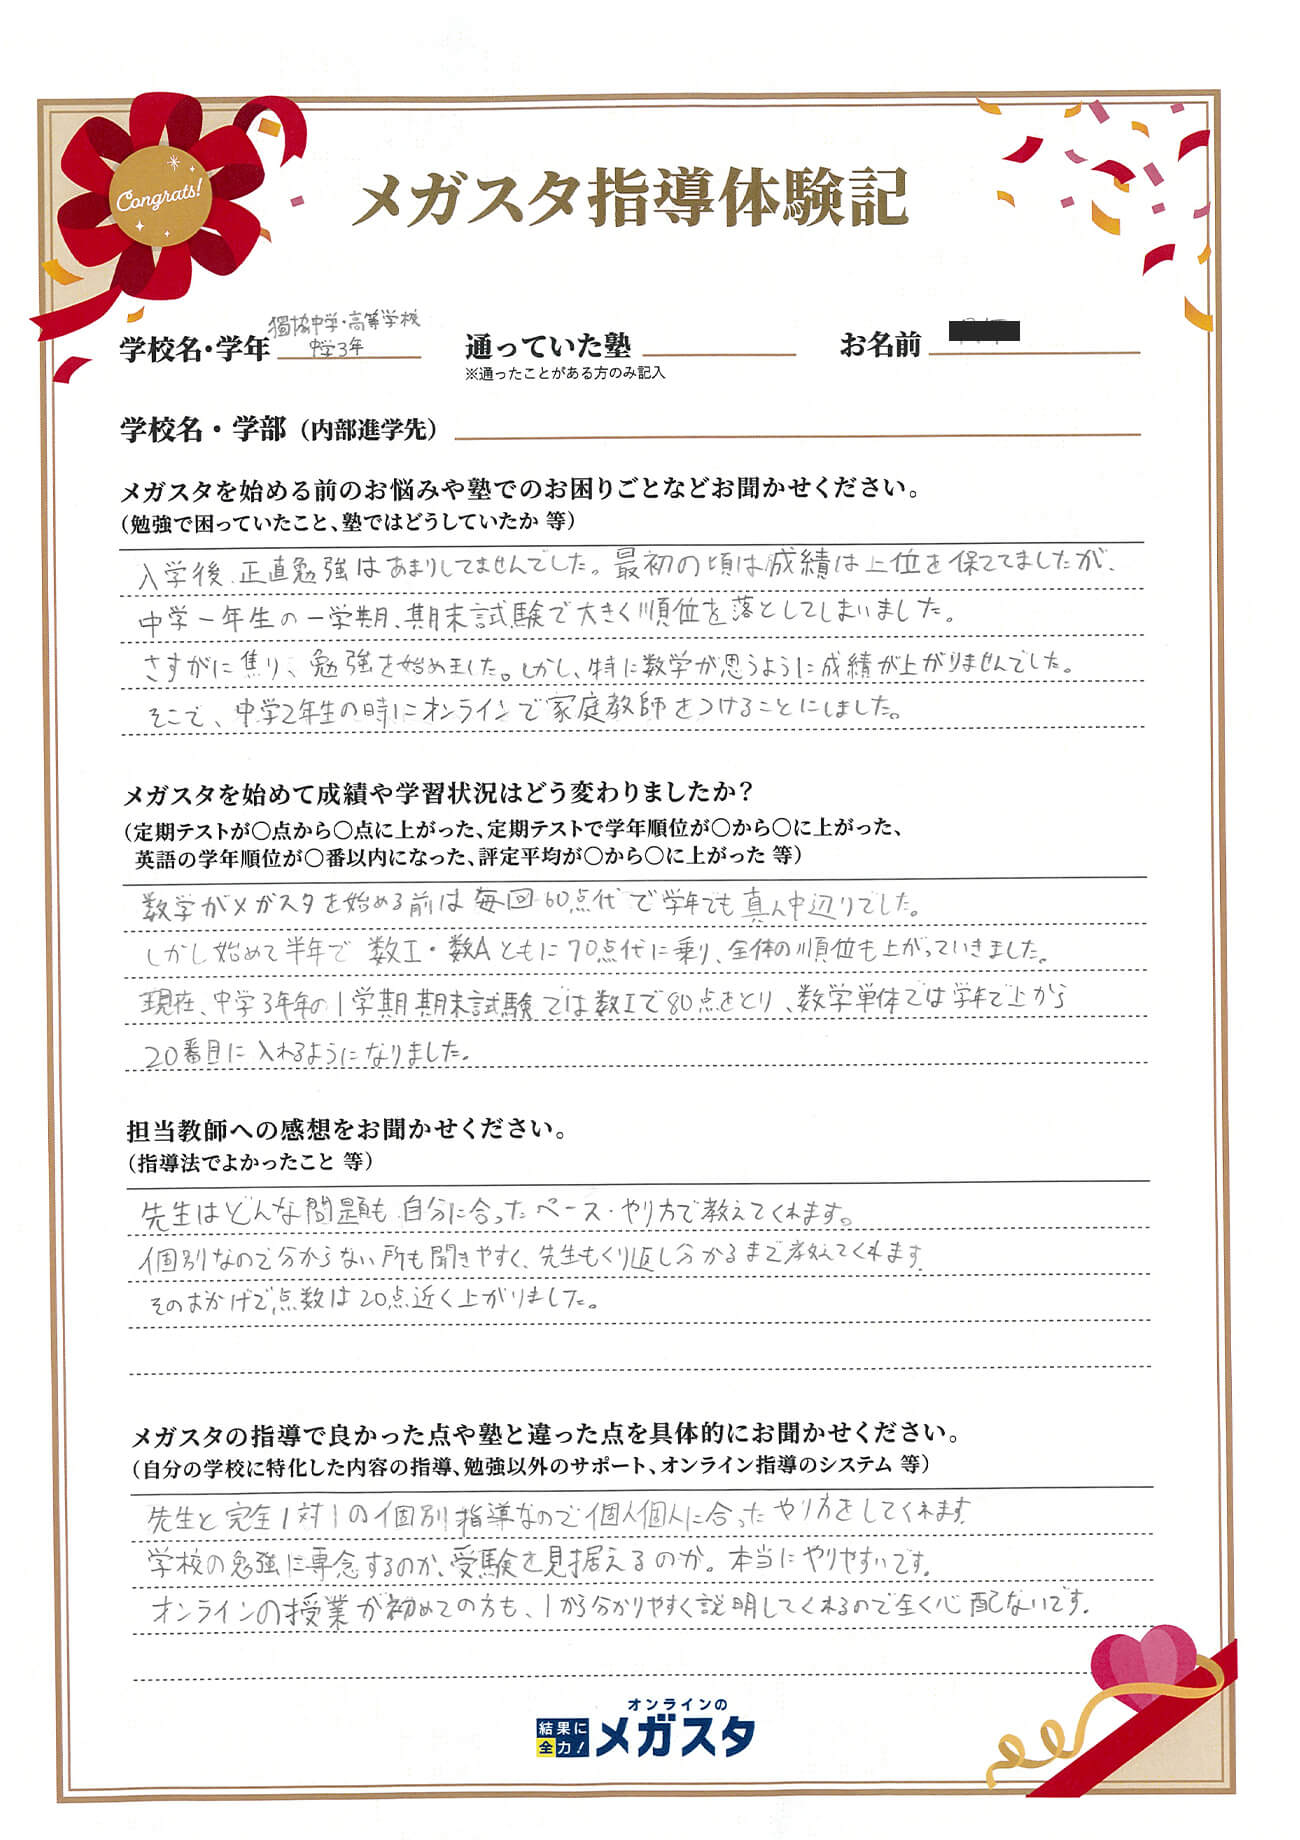 Congrats!
メガスタ指導体験記
学校名・学年 獨協中学・高等学校 中学3年 通っていた塾 お名前
※通ったことがある方のみ記入
学校名・学部（内部進学先）
メガスタを始める前のお悩みや塾でのお困りごとなどお聞かせください。
（勉強で困っていたこと、塾ではどうしていたか 等）
入学後、正直勉強はあまりしてませんでした。最初の頃は成績は上位を保ててましたが、
中学一年生の一学期、期末試験で大きく順位を落としてしまいました。
さすがに焦り、勉強を始めました。しかし、特に数学が思うように成績が上がりませんでした。
そこで、中学2年生の時にオンラインで家庭教師をつけることにしました。
メガスタを始めて成績や学習状況はどう変わりましたか？
（定期テストが〇点から〇点に上がった、定期テストで学年順位が〇から〇に上がった、
英語の学年順位が〇番以内になった、評定平均が〇から〇に上がった 等）
数学がメガスタを始める前は毎回60点代で学年でも真ん中辺りでした。
しかし始めて半年で 数I・数Aともに70点代に乗り、全体の順位も上がっていきました。
現在、中学3年年の1学期期末試験では数Iで80点をとり、数学単体では学年で上から
20番目に入れるようになりました。
担当教師への感想をお聞かせください。
（指導法でよかったこと 等）
先生はどんな問題も自分に合ったペース・やり方で教えてくれます。
個別なので分からない所も聞きやすく、先生もくり返し分かるまで教えてくれます。
そのおかげで点数は20点近く上がりました。
メガスタの指導で良かった点や塾と違った点を具体的にお聞かせください。
（自分の学校に特化した内容の指導、勉強以外のサポート、オンライン指導のシステム 等）
先生と完全1対1の個別指導なので個人個人に合ったやり方をしてくれます。
学校の勉強に専念するのか、受験を見据えるのか。本当にやりやすいです。
オンラインの授業が初めての方も、1から分かりやすく説明してくれるので全く心配ないです。
オンラインの
結果に全力！メガスタ